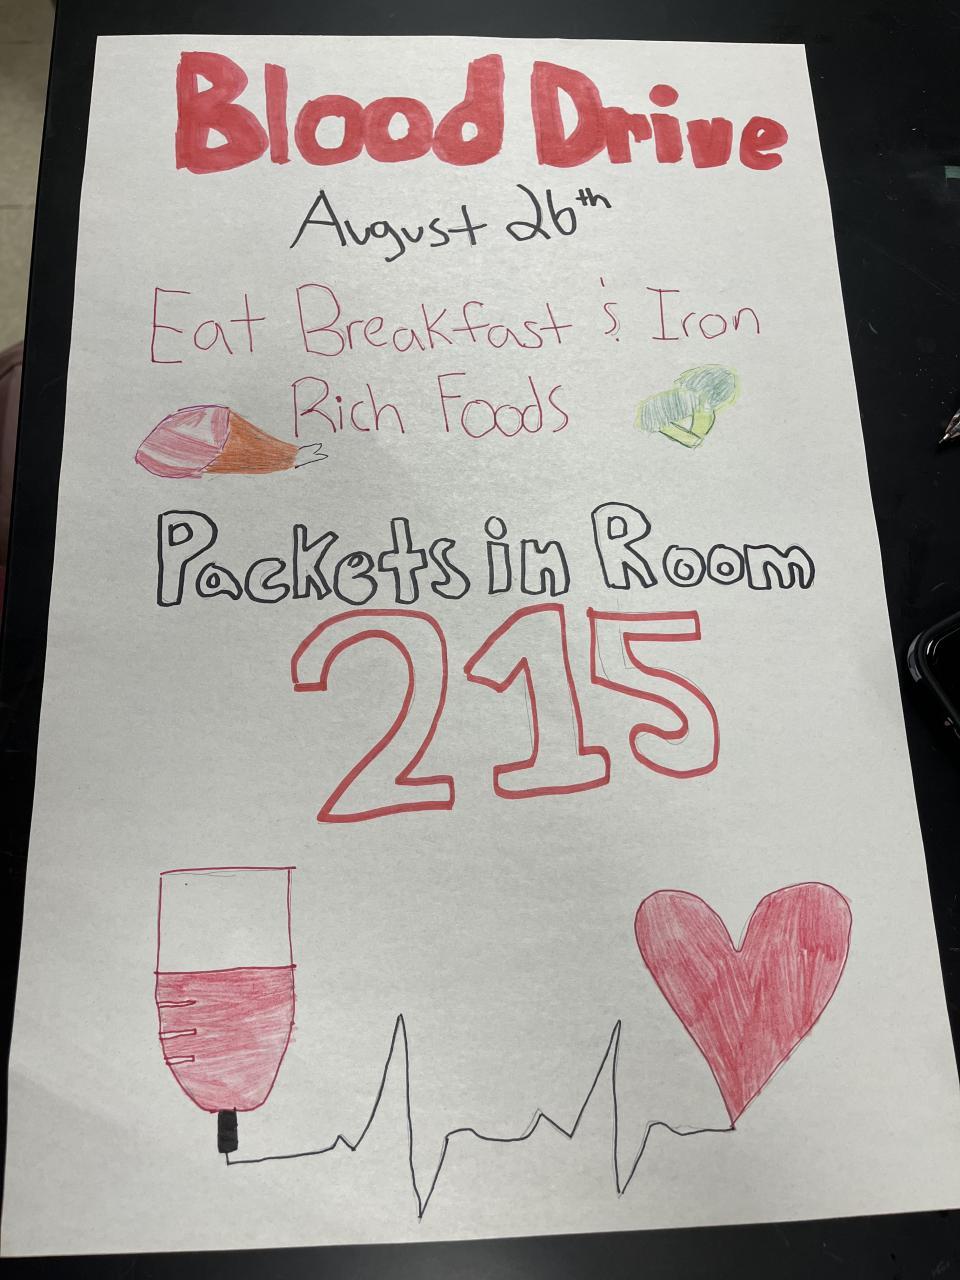 Blood Drive
August 26th
Eat Breakfast & Iron
Rich Foods
Packets in Room
215